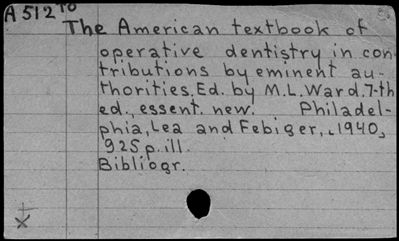 A 512 TO
The American textbook of
operative dentistry in con-
tributions by eminent au-
thorities. Ed. by M.L. Ward. 7-th
ed., essent. new. Philadel-
phia, Lea and Febiger, 1940,
925 p. ill.
Bibliogr.